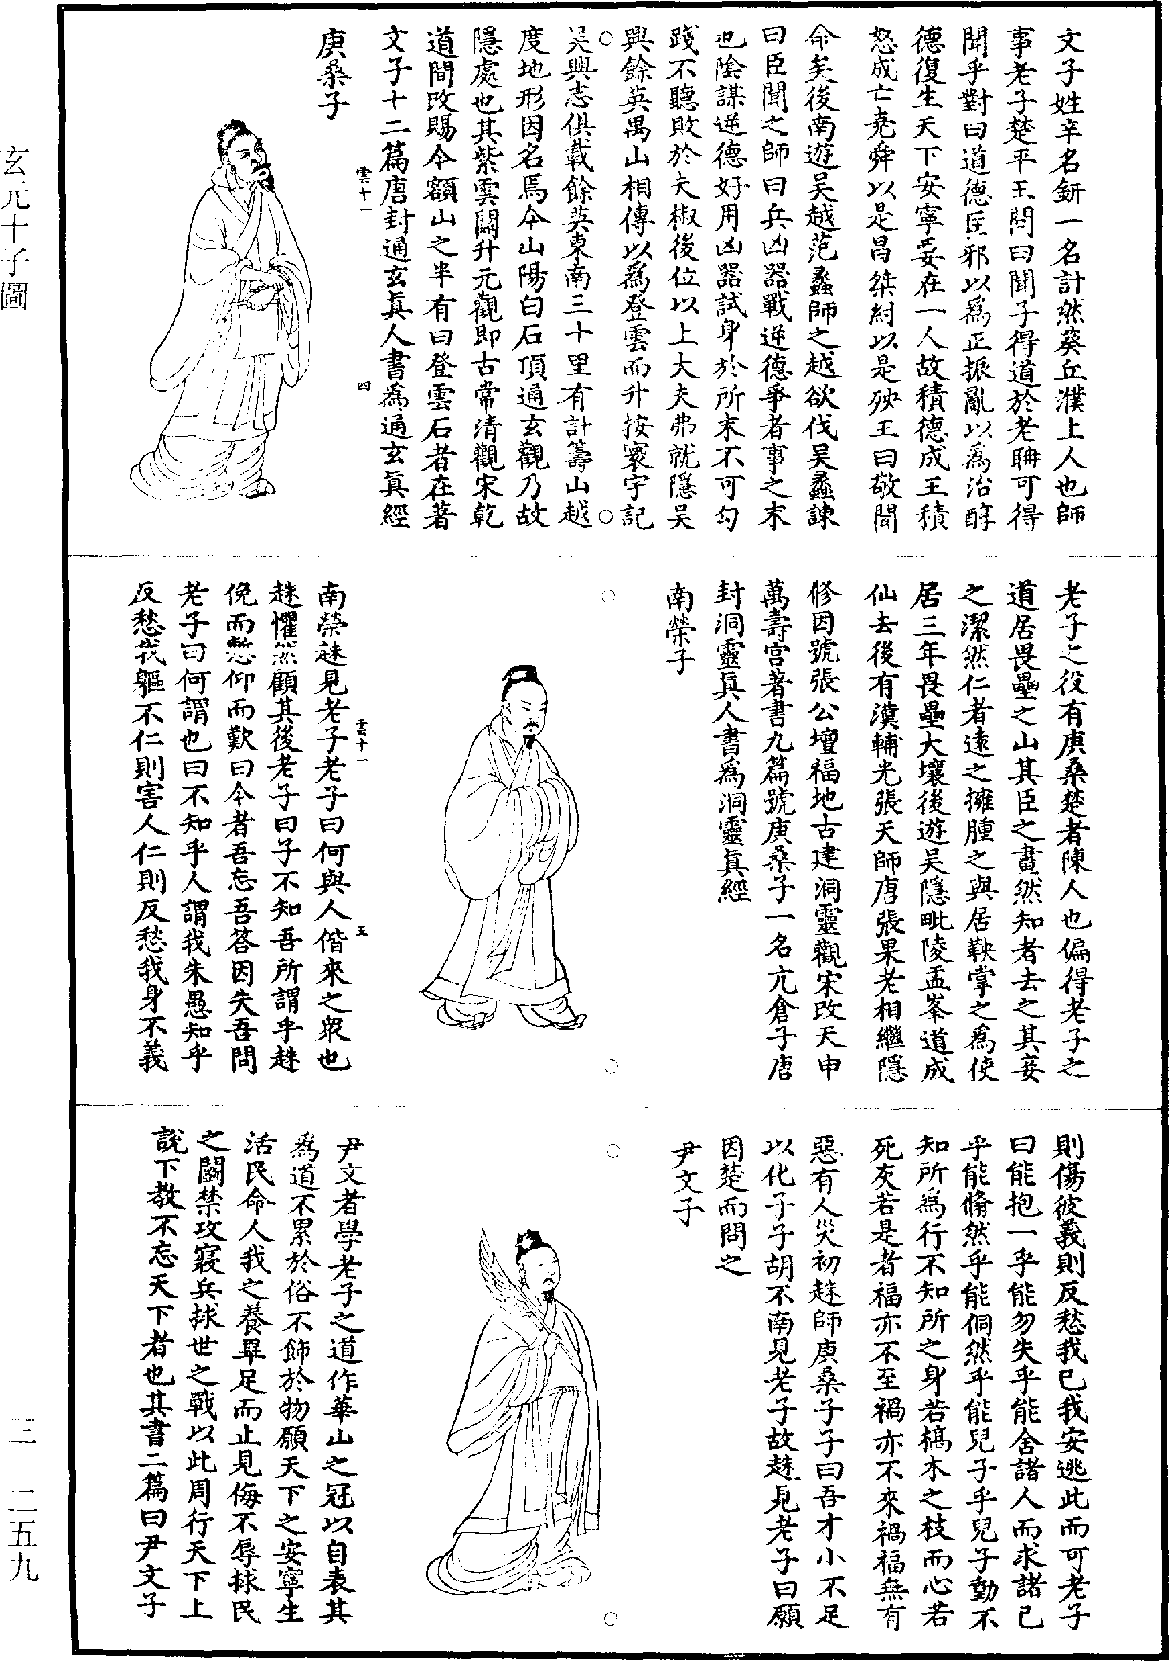 玄元十子圖
文子姓辛名銒一名計然葵丘濮上人也師
事老子楚平王問曰聞子得道於老聃可得
聞乎對曰道德匡邪以為正振亂以為治醇
德復生天下安寧妾在一人故積德成王積
怒成亡堯舜以是昌桀紂以是殃王曰敬聞
命矣後南遊吳越范蠡師之越欲伐吳蠡諫
曰臣聞之師曰兵凶器戰逆德爭者事之末
也陰謀逆德好用凶器試身於所末不可勾
踐不聽敗於夫椒後位以上大夫弗就隱吳
興餘英禺山相傳以為登雲而升按寰宇記
吳興志俱載餘英東南三十里有計籌山越
度地形因名焉今山陽白石頂通玄觀乃故
隱處也其紫雲關升元觀即古常清觀宋乾
道間改賜今額山之半有曰登雲石者在著
文子十二篇唐封通玄真人書為通玄真經
雲十一
四
庚桑子
老子之役有庚桑楚者陳人也偏得老子之
道居畏壘之山其臣之畫然知者去之其妾
之潔然仁者遠之擁腫之與居鞅掌之為使
居三年畏壘大壤後遊吳隱毗陵孟峯道成
仙去後有漢輔光張天師唐張果老相繼隱
修因號張公壇福地古建洞靈觀宋改天申
萬壽宮著書九篇號庚桑子一名亢倉子唐
封洞靈真人書為洞靈真經
南榮子
雲十一
五
南榮趎見老子老子曰何與人偕來之眾也
趎懼然顧其後老子曰子不知吾所謂乎趎
俛而慙仰而歎曰今者吾忘吾答因失吾問
老子曰何謂也曰不知乎人謂我朱愚知乎
反愁我軀不仁則害人仁則反愁我身不義
則傷彼義則反愁我已我安逃此而可老子
曰能抱一乎能勿失乎能舍諸人而求諸己
乎能翛然乎能侗然乎能兒子乎兒子動不
知所為行不知所之身若槁木之枝而心若
死灰若是者福亦不至禍亦不來禍福無有
惡有人災初趎師庚桑子子曰吾才小不足
以化子子胡不南見老子故趎見老子曰願
因楚而問之
尹文子
尹文者學老子之道作華山之冠以自表其
為道不累於俗不飾於物願天下之安寧生
活民命人我之養畢足而止見侮不辱捄民
之鬬禁攻寢兵捄世之戰以此周行天下上
說下教不忘天下者也其書二篇曰尹文子
三 二五九